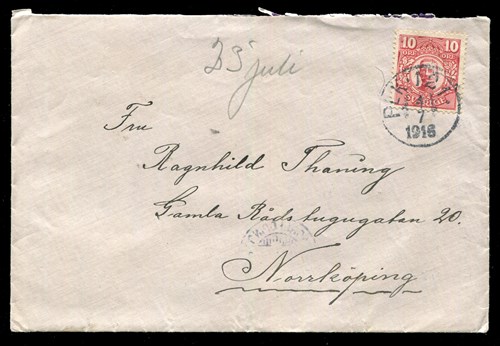 23 juli
10 10
ÖRE ÖRE
SVERIGE
7
1916
Fru
Ragnhild Thaning
Gamla Rådstugugatan 20.
Norrköping